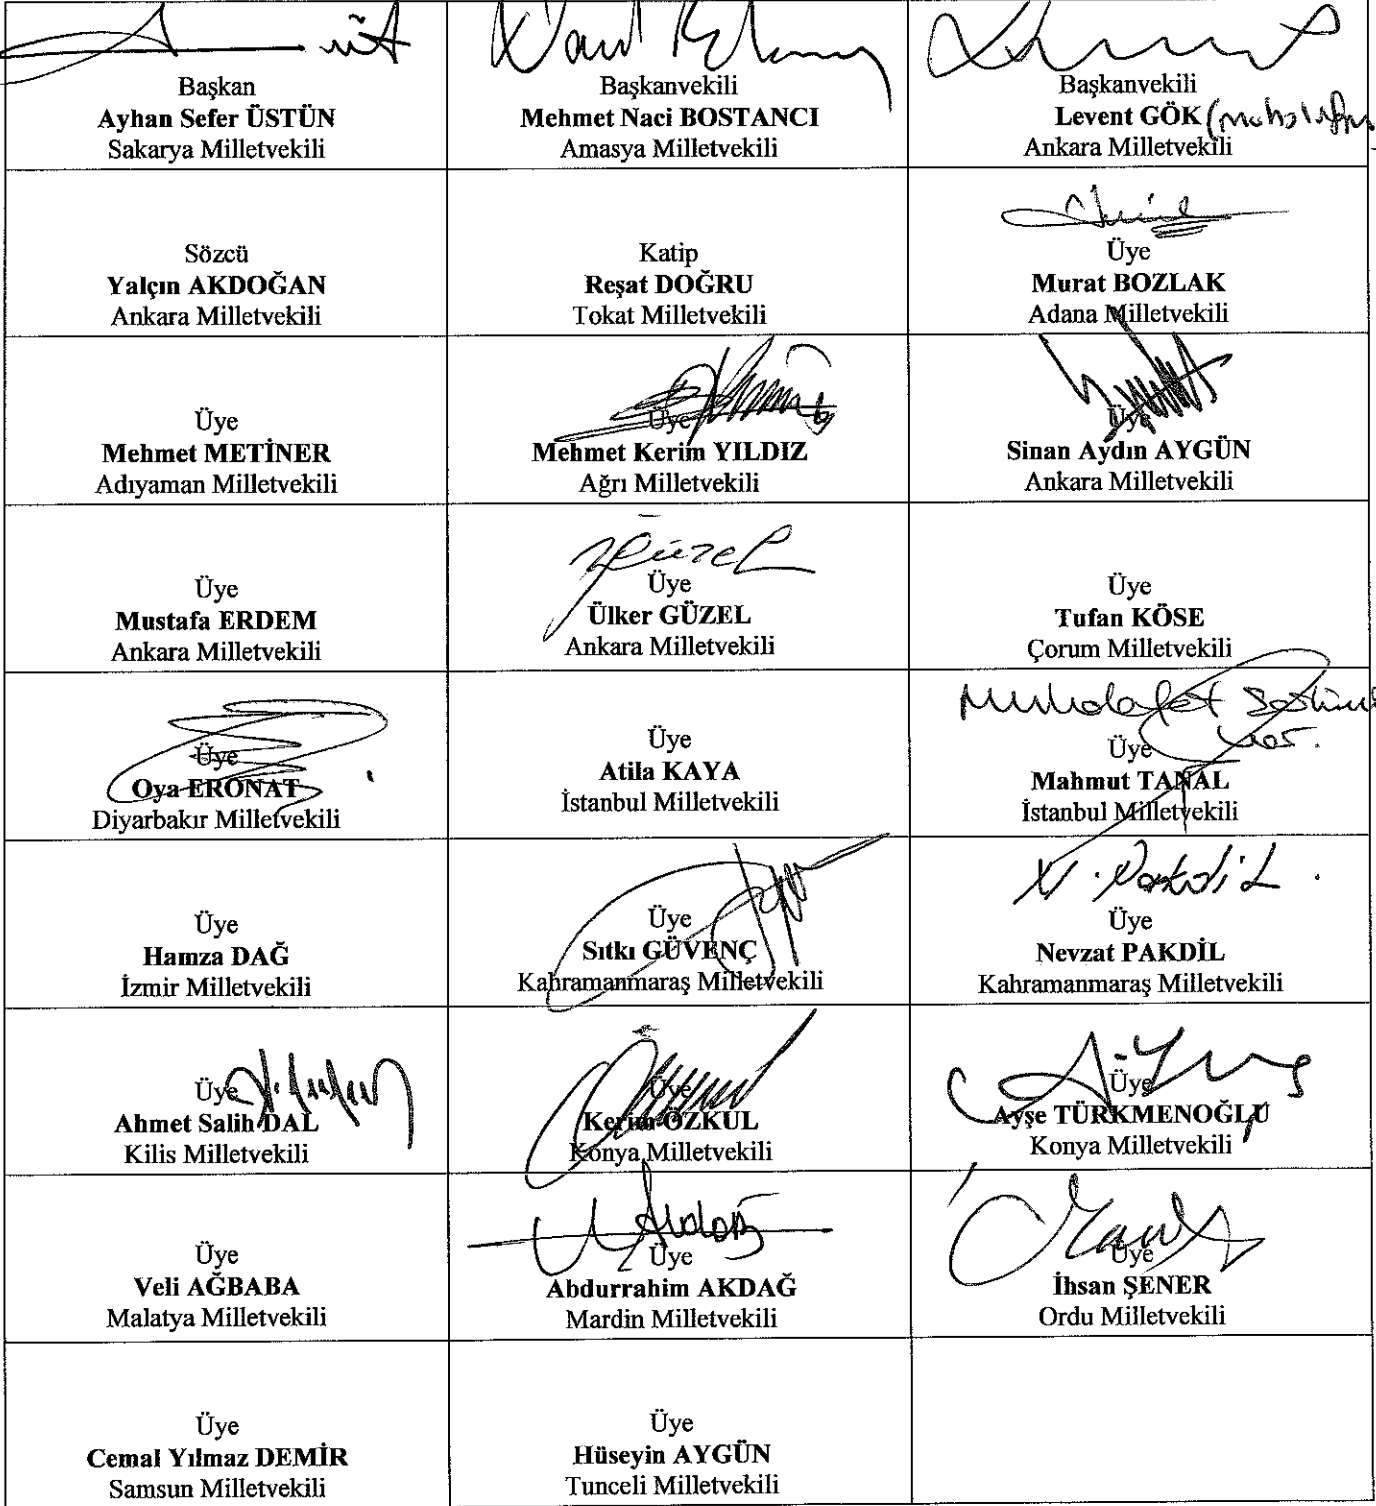 Başkan
Ayhan Sefer ÜSTÜN
Sakarya Milletvekili
Başkanvekili
Mehmet Naci BOSTANCI
Amasya Milletvekili
Başkanvekili
Levent GÖK
Ankara Milletvekili
Sözcü
Yalçın AKDOĞAN
Ankara Milletvekili
Katip
Reşat DOĞRU
Tokat Milletvekili
Üye
Murat BOZLAK
Adana Milletvekili
Üye
Mehmet METİNER
Adıyaman Milletvekili
Üye
Mehmet Kerim YILDIZ
Ağrı Milletvekili
Üye
Sinan Aydın AYGÜN
Ankara Milletvekili
Üye
Mustafa ERDEM
Ankara Milletvekili
Üye
Ülker GÜZEL
Ankara Milletvekili
Üye
Tufan KÖSE
Çorum Milletvekili
Üye
Oya ERONAT
Diyarbakır Milletvekili
Üye
Atila KAYA
İstanbul Milletvekili
Üye
Mahmut TANAL
İstanbul Milletvekili
Üye
Hamza DAĞ
İzmir Milletvekili
Üye
Sıtkı GÜVENÇ
Kahramanmaraş Milletvekili
N. Pakdil
Üye
Nevzat PAKDİL
Kahramanmaraş Milletvekili
Üye
Ahmet Salih DAL
Kilis Milletvekili
Üye
Kerim ÖZKUL
Konya Milletvekili
Üye
Ayşe TÜRKMENOĞLU
Konya Milletvekili
Üye
Veli AĞBABA
Malatya Milletvekili
Üye
Abdurrahim AKDAĞ
Mardin Milletvekili
Üye
İhsan ŞENER
Ordu Milletvekili
Üye
Cemal Yılmaz DEMİR
Samsun Milletvekili
Üye
Hüseyin AYGÜN
Tunceli Milletvekili